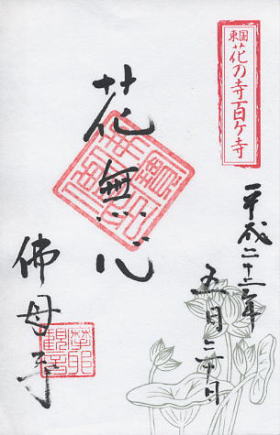 東国
花の寺百ヶ寺
平成二十三年
五月三十日
花無心
佛母寺